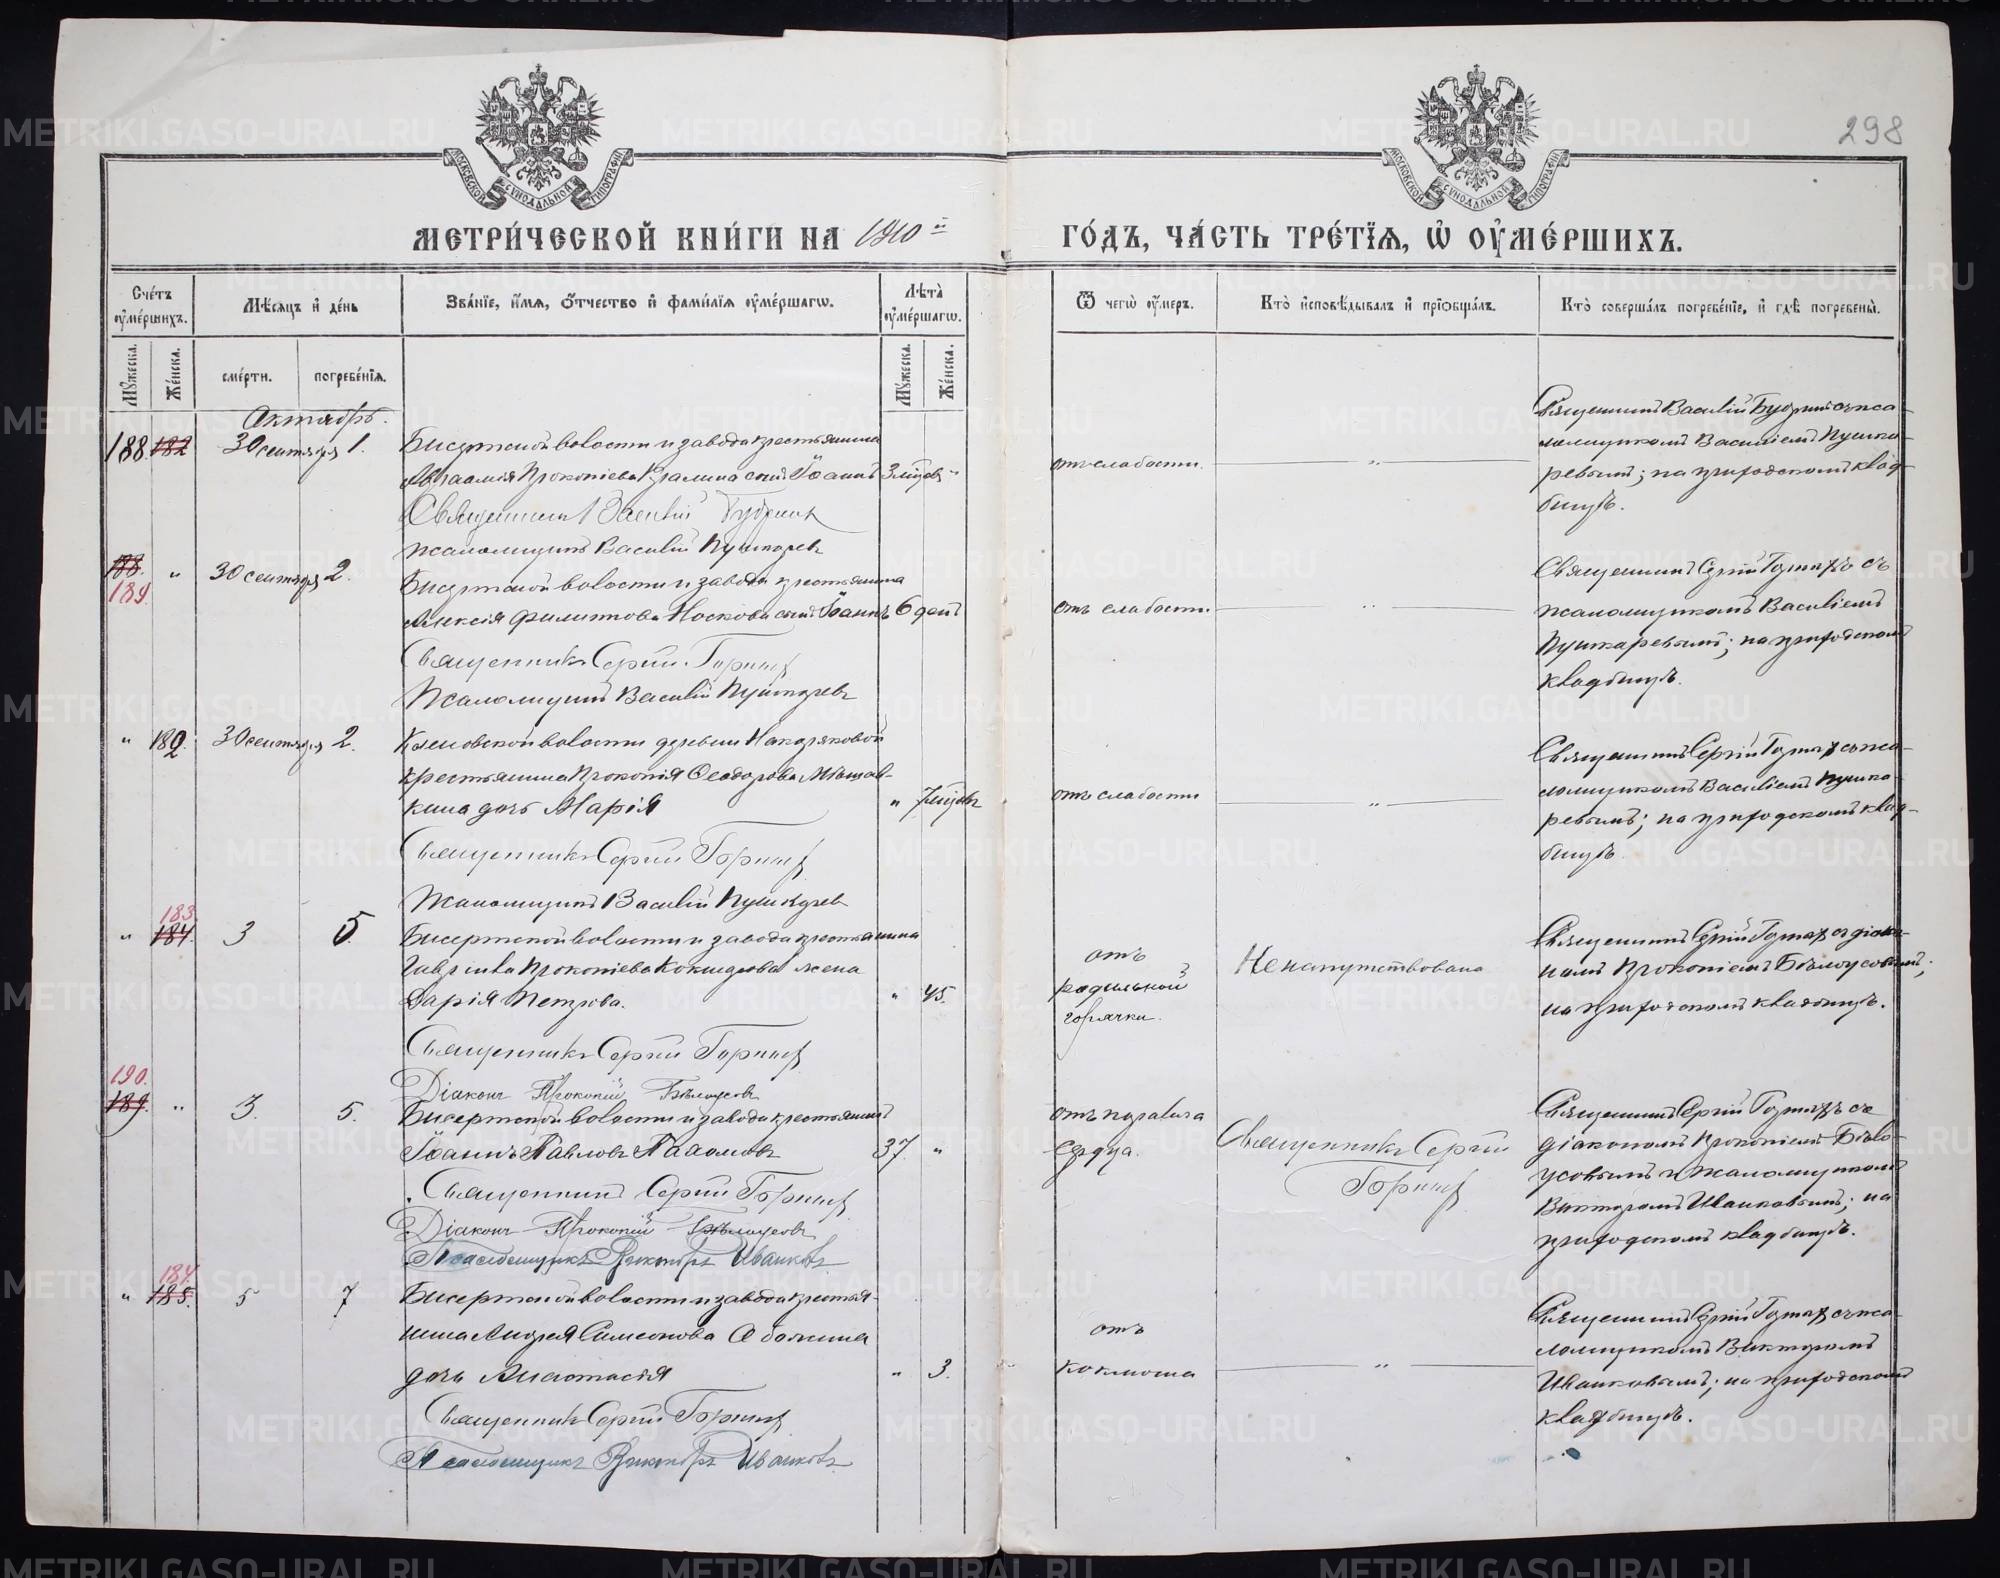 298
МОСКОВСКОЙ СѴНОДАЛЬНОЙ ТИПОГРАФІИ
МОСКОВСКОЙ СѴНОДАЛЬНОЙ ТИПОГРАФІИ
МЕТРИ́ЧЕСКОЙ КНИ́ГИ НА 1910 й
ГО́ДЪ, ЧА́СТЬ ТРЕ́ТЇѦ, Ѡ҆ ОУ҆МЕ́РШИХЪ.
Сче́тъ оу҆ме́ршихъ.
Мѣ́сѧцъ и҆ де́нь
Зва́нїе, и҆́мѧ, ѻ҆́тчество и҆ фами́лїѧ оу҆ме́ршагѡ.
Лѣ́та оу҆ме́ршагѡ.
Ѿ чегѡ̀ оу҆́меръ.
Кто̀ и҆сповѣ́дывалъ и҆ прїѡбща́лъ.
Кто̀ соверша́лъ погребе́нїе, и҆ гдѣ̀ погребены̀.
Мꙋ́жеска.
Же́нска.
сме́рти.
погребе́нїѧ.
Мꙋ́жеска.
Же́нска.
Октябрь.
188. 182 30 сентября 1.
Бисертской волости и завода крестьянина
Прокопіева сынъ Іоаннъ 3 мѣсяц. "
Священникъ Василій Будринъ
Псаломщикъ Василій Пушкаревъ
отъ слабости. "
Священникъ Василій Будринъ съ пса-
ломщикомъ Василіемъ Пушка-
ревымъ; на приходскомъ клад-
бищѣ.
188. 189. " 30 сентября 2.
Бисертской волости и завода крестьянина
Алексія Филиппова Носкова сынъ Іоаннъ 6 дней
Священникъ Сергій
Псаломщикъ Василій Пушкаревъ
отъ слабости "
Священникъ Сергій съ
псаломщикомъ Василіемъ
Пушкаревымъ; на приходскомъ
кладбищѣ.
" 182. 30 сентября 2.
Кленовской волости деревни Накоряковой
крестьянина Прокопія Ѳеодорова
кина дочь Марія " 7 мѣсяц.
Священникъ Сергій
Псаломщикъ Василій Пушкаревъ
отъ слабости "
Священникъ Сергій съ пса-
ломщикомъ Василіемъ Пушка-
ревымъ; на приходскомъ клад-
бищѣ.
" 183. 184. 3 5.
Бисертской волости и завода крестьянина
Гавриила Прокопіева жена
Дарія Петрова. " 45.
Священникъ Сергій
Діаконъ Прокопій Бѣлоусовъ
отъ
родильной
горячки.
Не напутствована
Священникъ Сергій съ діако-
номъ Прокопіемъ Бѣлоусовымъ;
на приходскомъ кладбищѣ.
190. 189. " 3. 5.
Бисертской волости и завода крестьянинъ
Іоаннъ Павловъ 37. "
Священникъ Сергій
Діаконъ Прокопій Бѣлоусовъ
Псаломщикъ Викторъ Иванковъ
отъ паралича
сердца.
Священникъ Сергій
Священникъ Сергій съ
діакономъ Прокопіемъ Бѣло-
усовымъ и псаломщикомъ
Викторомъ Иванковымъ; на
приходскомъ кладбищѣ.
" 184. 185. 5 7
Бисертской волости и завода крестья-
нина Андрея Симеонова
дочь Анастасія " 3.
Священникъ Сергій
Псаломщикъ Викторъ Иванковъ
отъ
коклюша "
Священникъ Сергій съ пса-
ломщикомъ Викторомъ
Иванковымъ; на приходскомъ
кладбищѣ.
METRIKI.GASO-URAL.RU